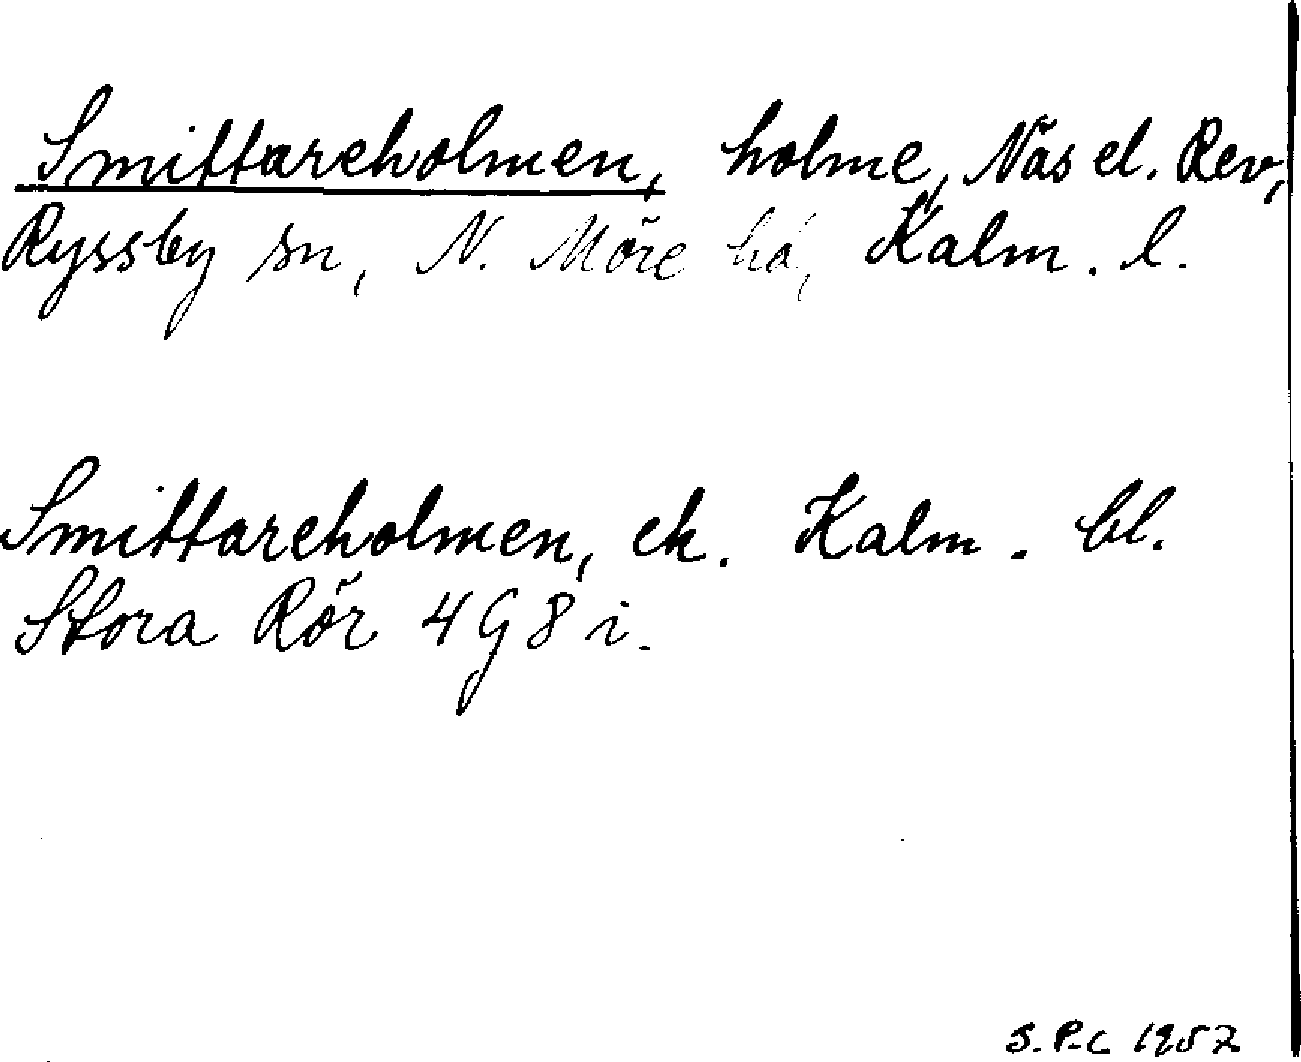 Smittareholmen, holme, Näs el. Rev,
Ryssby sn, N. Möre hd, Kalm. l.
Smittareholmen, ek. Kalm. bl.
Stora Rör 4G8i.
S.P-C 1957